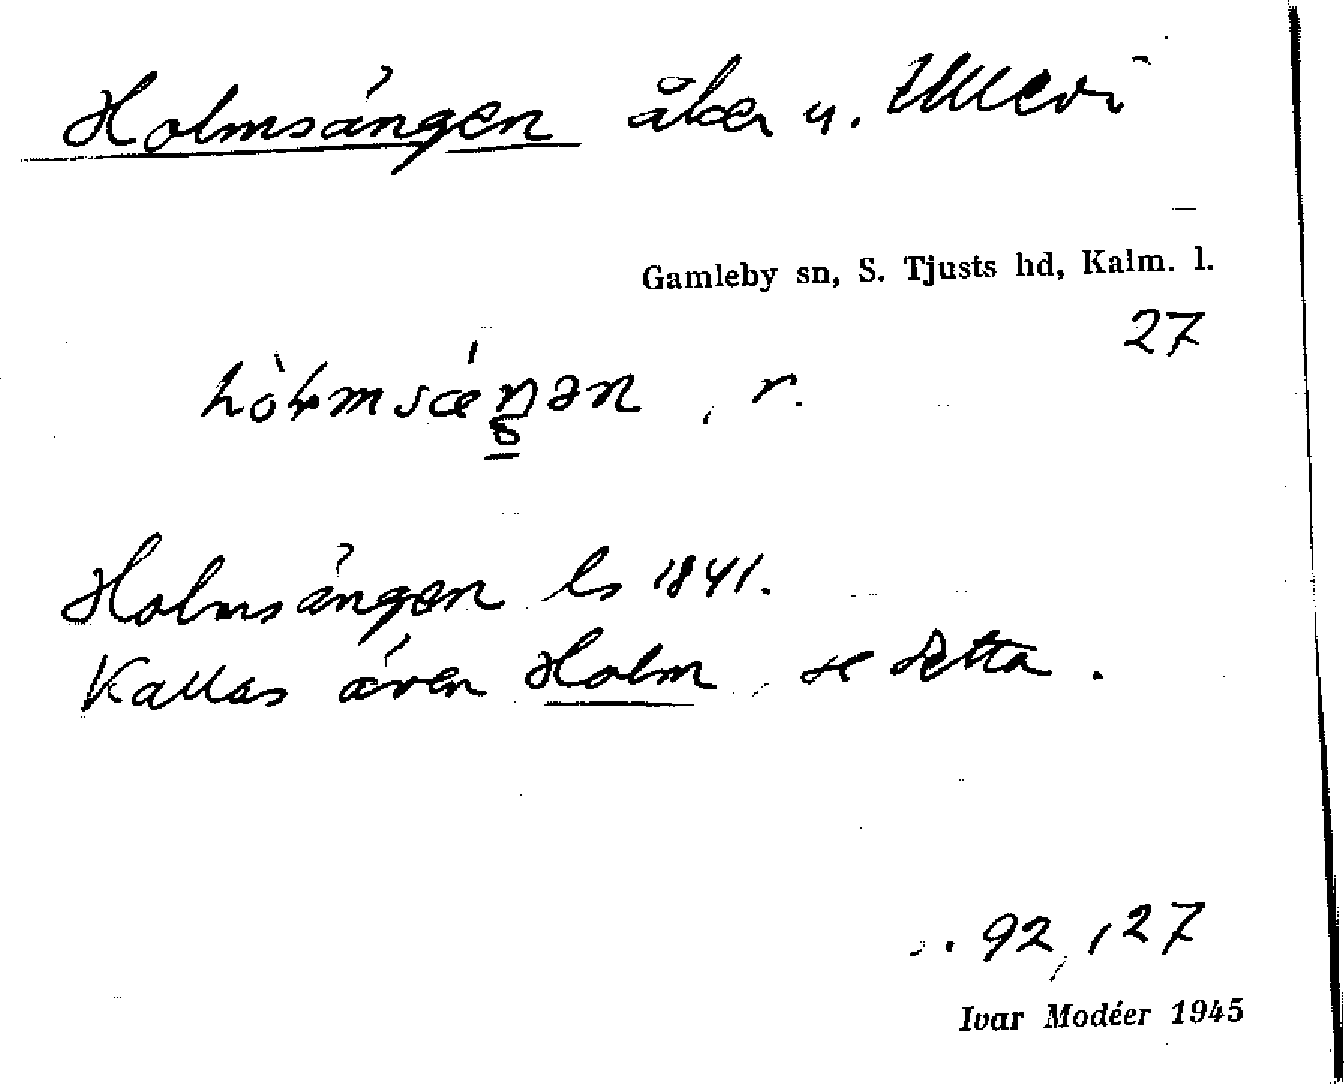 Holmsängen åker u. Ullevi
Gamleby sn, S. Tjusts hd, Kalm. l.
27
r.
Holmsängen ls 1841.
Kallas även Holm, se detta.
92, 27
Ivar Modéer 1945